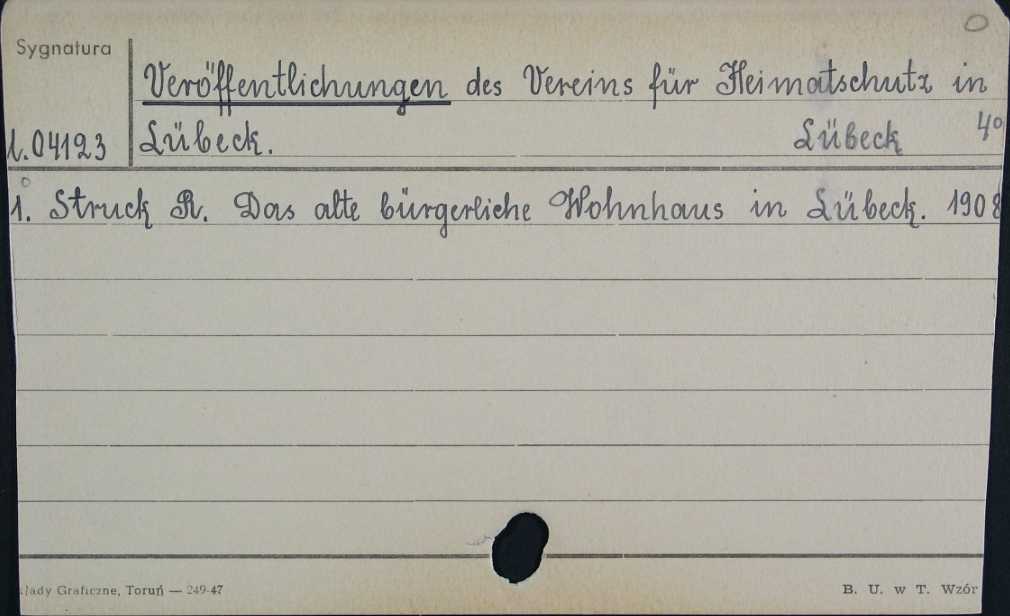 Sygnatura
Veröffentlichungen des Vereins für Heimatschutz in
Lübeck. Lübeck 4°
1.04123
1. Struck R. Das alte bürgerliche Wohnhaus in Lübeck. 1908
kłady Graficzne, Toruń — 249-47
B. U. w T. Wzór